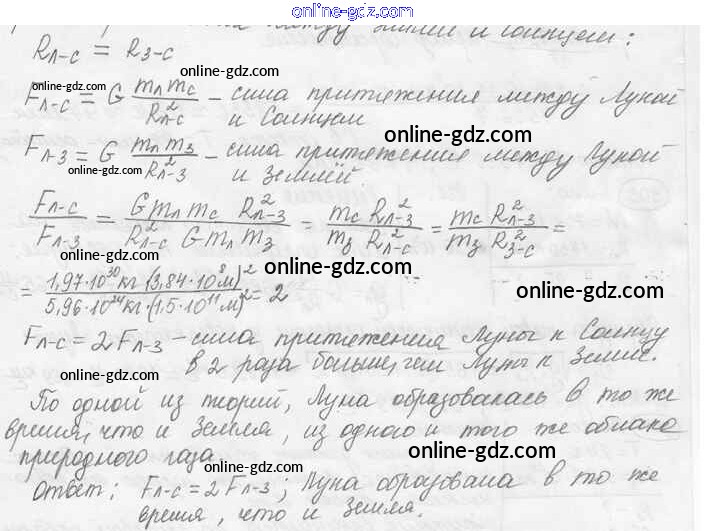 online-gdz.com
между Землей и Солнцем:
Rл-с = Rз-с
online-gdz.com
Fл-с = G mл mс / R²л-с - сила притяжения между Луной
и Солнцем
online-gdz.com
online-gdz.com
Fл-з = G mл mз / R²л-з - сила притяжения между Луной
и Землёй
online-gdz.com
Fл-с / Fл-з = G mл mс R²л-з / R²л-с G mл mз = mс R²л-з / mз R²л-с = mс R²л-з / mз R²з-с =
online-gdz.com
online-gdz.com
= 1,97·10³⁰кг·(3,84·10⁸м)² / 5,96·10²⁴кг·(1,5·10¹¹м)² = 2
online-gdz.com
Fл-с = 2Fл-з - сила притяжения Луны к Солнцу
в 2 раза больше, чем Луны к Земле.
online-gdz.com
По одной из теорий, Луна образовалась в то же
время, что и Земля, из одного и того же облака
природного газа.
online-gdz.com
online-gdz.com
Ответ: Fл-с = 2Fл-з; Луна образована в то же
время, что и Земля.
online-gdz.com